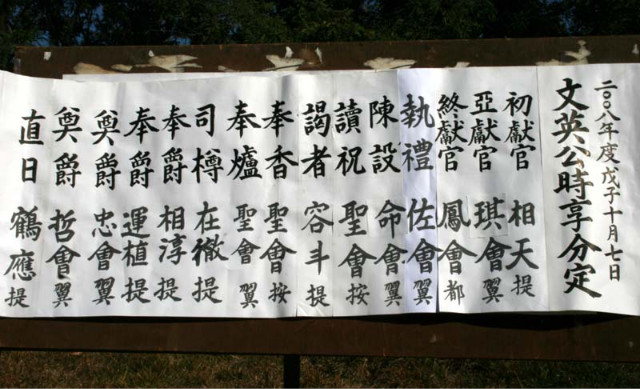 二〇〇八年度戊子十月七日
文英公時享分定
初獻官 相天 提
亞獻官 琪會 翼
終獻官 鳳會 都
執禮 佐會 翼
陳設 命會 翼
讀祝 聖會 按
謁者 容斗 提
奉香 聖會 按
奉爐 聖會 翼
司樽 在徹 提
奉爵 相淳 提
奉爵 運植 提
奠爵 忠會 翼
奠爵 哲會 翼
直日 鶴應 提